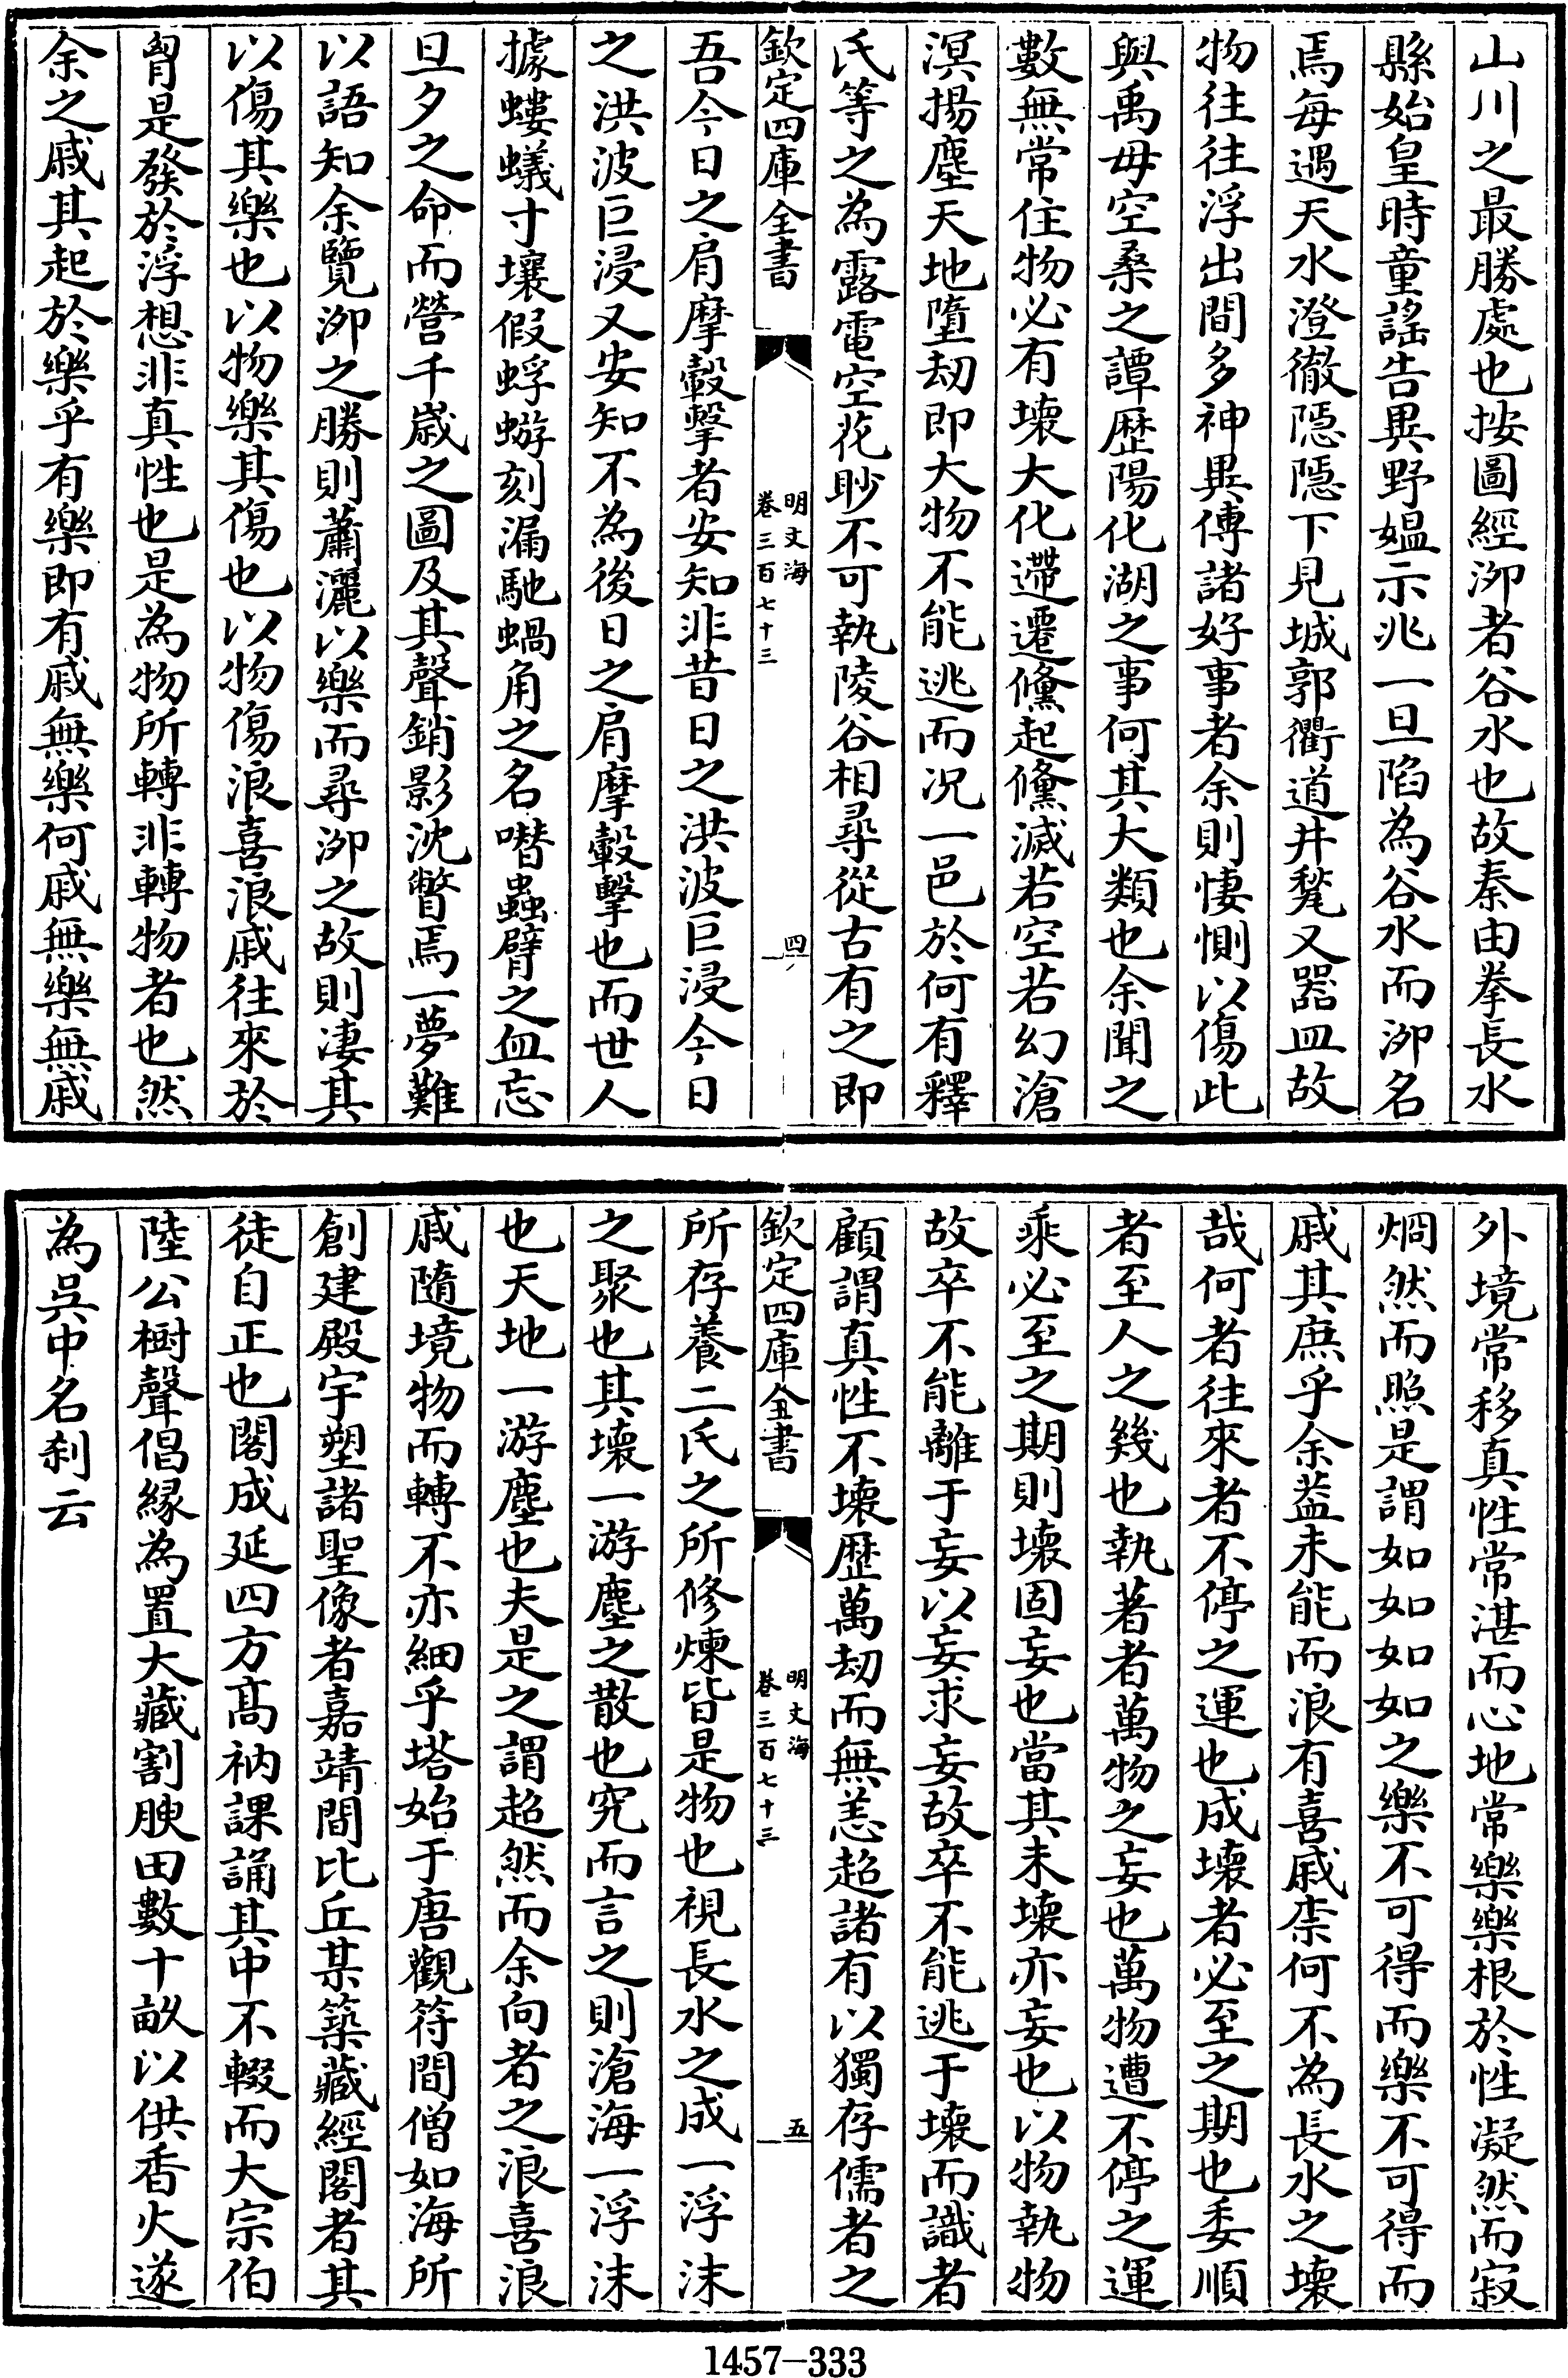 山川之最勝處也按圖經泖者谷水也故秦由拳長水
縣始皇時童謡告異野媪示兆一旦陷為谷水而泖名
焉每遇天水澄徹隠隠下見城郭衢道井甃又器皿故
物往往浮出間多神異傳諸好事者余則悽惻以傷此
與禹毋空桑之譚歴陽化湖之事何其大類也余聞之
數無常住物必有壞大化遞遷儵起儵滅若空若幻滄
溟揚塵天地墮刼即大物不能逃而况一邑於何有釋
氏等之為露電空花眇不可執陵谷相尋從古有之即
欽定四庫全書
明文海
卷三百七十三
四
吾今日之肩摩轂擊者安知非昔日之洪波巨浸今日
之洪波巨浸又安知不為後日之肩摩轂擊也而世人
據螻蟻寸壤假蜉蝣刻漏馳蝸角之名噆蟲臂之血忘
旦夕之命而營千歲之圖及其聲銷影沈瞥焉一夢難
以語知余覽泖之勝則蕭灑以樂而尋泖之故則凄其
以傷其樂也以物樂其傷也以物傷浪喜浪戚往來於
胷是發於浮想非真性也是為物所轉非轉物者也然
余之戚其起於樂乎有樂即有戚無樂何戚無樂無戚
外境常移真性常湛而心地常樂樂根於性凝然而寂
烱然而照是謂如如如如之樂不可得而樂不可得而
戚其庶乎余葢未能而浪有喜戚柰何不為長水之壞
哉何者往來者不停之運也成壞者必至之期也委順
者至人之幾也執著者萬物之妄也萬物遭不停之運
乘必至之期則壞固妄也當其未壞亦妄也以物執物
故卒不能離于妄以妄求妄故卒不能逃于壞而識者
顧謂真性不壞歴萬刼而無恙超諸有以獨存儒者之
欽定四庫全書
明文海
卷三百七十三
五
所存養二氏之所修煉皆是物也視長水之成一浮沫
之聚也其壞一游塵之散也究而言之則滄海一浮沫
也天地一游塵也夫是之謂超然而余向者之浪喜浪
戚隨境物而轉不亦細乎塔始于唐觀符間僧如海所
創建殿宇塑諸聖像者嘉靖間比丘某築藏經閣者其
徒自正也閣成延四方高衲課誦其中不輟而大宗伯
陸公樹聲倡縁為置大藏割腴田數十畝以供香火遂
為吳中名刹云
1457-333